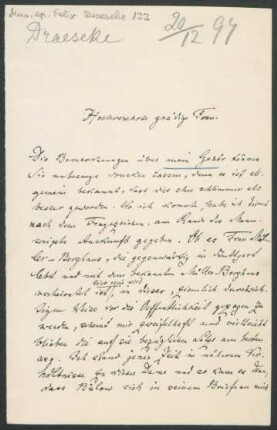 Mus. ep. Felix Draeseke 123
Draeseke
20/12 97
Hochverehrte gnädige Frau.
Die Bemerkungen über mein Gehör können
Sie drucken lassen, denn es ist all-
gemein bekannt, dass dies eher schlimmer als
besser geworden. Wo ich konnte, habe ich
nach den Fragezeichen, am Rand des Manu-
Auskunft gegeben. Ob es Frau
Berghaus, die gegenwärtig in Stuttgart
lebt und mit dem bekannten Müller-Berghaus
verheiratet ist, in dieser, ziemlich durchsich-
tigen Weise vor der Öffentlichkeit
werden, scheint mir zweifelhaft und vielleicht
blieben die auf sie bezüglichen am besten
weg. Bel stand jener Zeit in näheren Ver-
hältnissen zu dieser Dame und so kam es denn,
dass Bülow sich in seinen Briefen mit